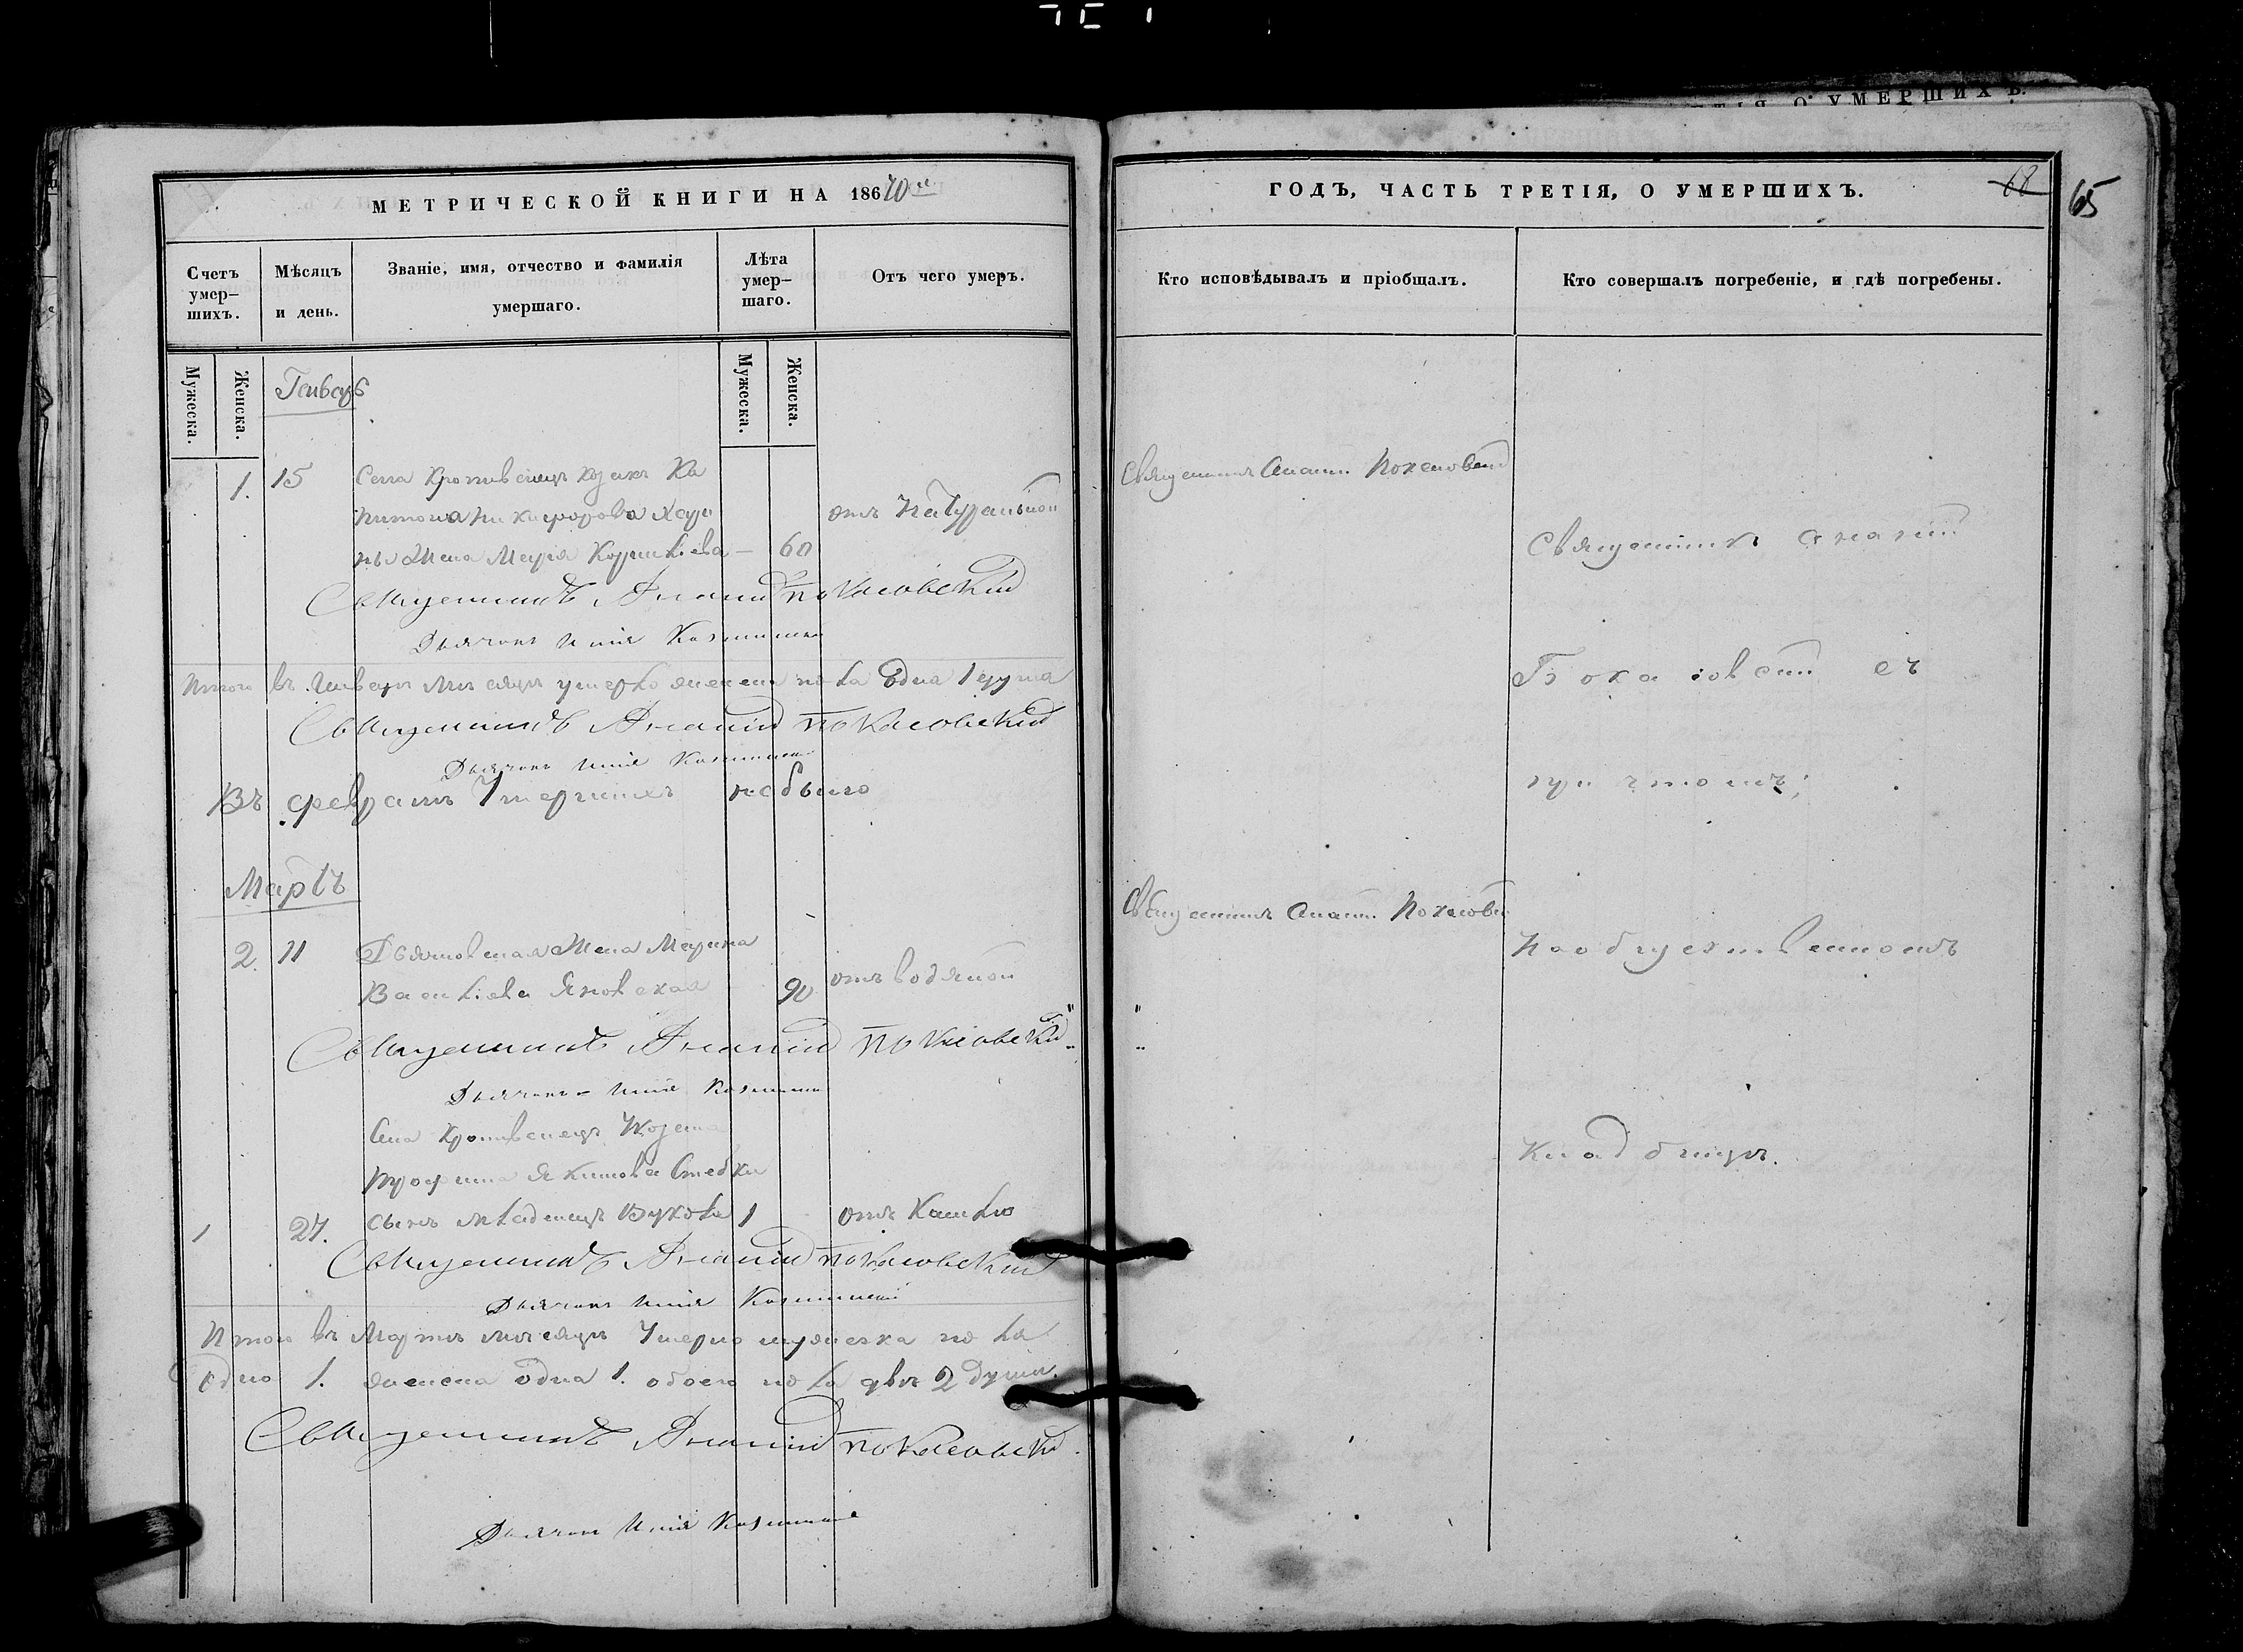 О УМЕРШИХЪ.
МЕТРИЧЕСКОЙ КНИГИ НА 18670
Счетъ умер-
шихъ.
Мѣсяцъ
и день.
Званіе, имя, отчество и фамилія
умершаго.
Лѣта
умер-
шаго.
Отъ чего умеръ.
Мужеска.
Женска.
Мужеска.
Женска.
Генварь
1. 15 Села козака
Никифорова
жена Марія 60 отъ натуральной
Священникъ Ананій Покасовскій
Дьячокъ Илія
Итого въ Генварѣ мѣсяцѣ умерло женска пола одна 1 душа
Священникъ Ананій Покасовскій
Дьячокъ Илія
Въ февралѣ Умершихъ не было
Мартъ
2. 11 жена Марина
Васильева Яновская 90 отъ водяной
Священникъ Ананій Покасовскій
Дьячокъ Илія
Села Козака
Трофима Якимова
1 27. сынъ младенецъ 1 отъ кашлю
Священникъ Ананій Покасовскій
Дьячокъ Илія
Итого въ Мартѣ мѣсяцѣ Умерло мужеска пола
одно 1. женска одна 1. обоего пола двѣ 2 души.
Священникъ Ананій Покасовскій
Дьячокъ Илія
ГОДЪ, ЧАСТЬ ТРЕТІЯ, О УМЕРШИХЪ.
68
65
Кто исповѣдывалъ и пріобщалъ.
Кто совершалъ погребеніе, и гдѣ погребены.
Священникъ Ананій Покасовскій
Священникъ Ананій
Покасовскій съ
причтомъ;
Священникъ Ананій Покасовскій
На общественномъ
кладбищѣ.